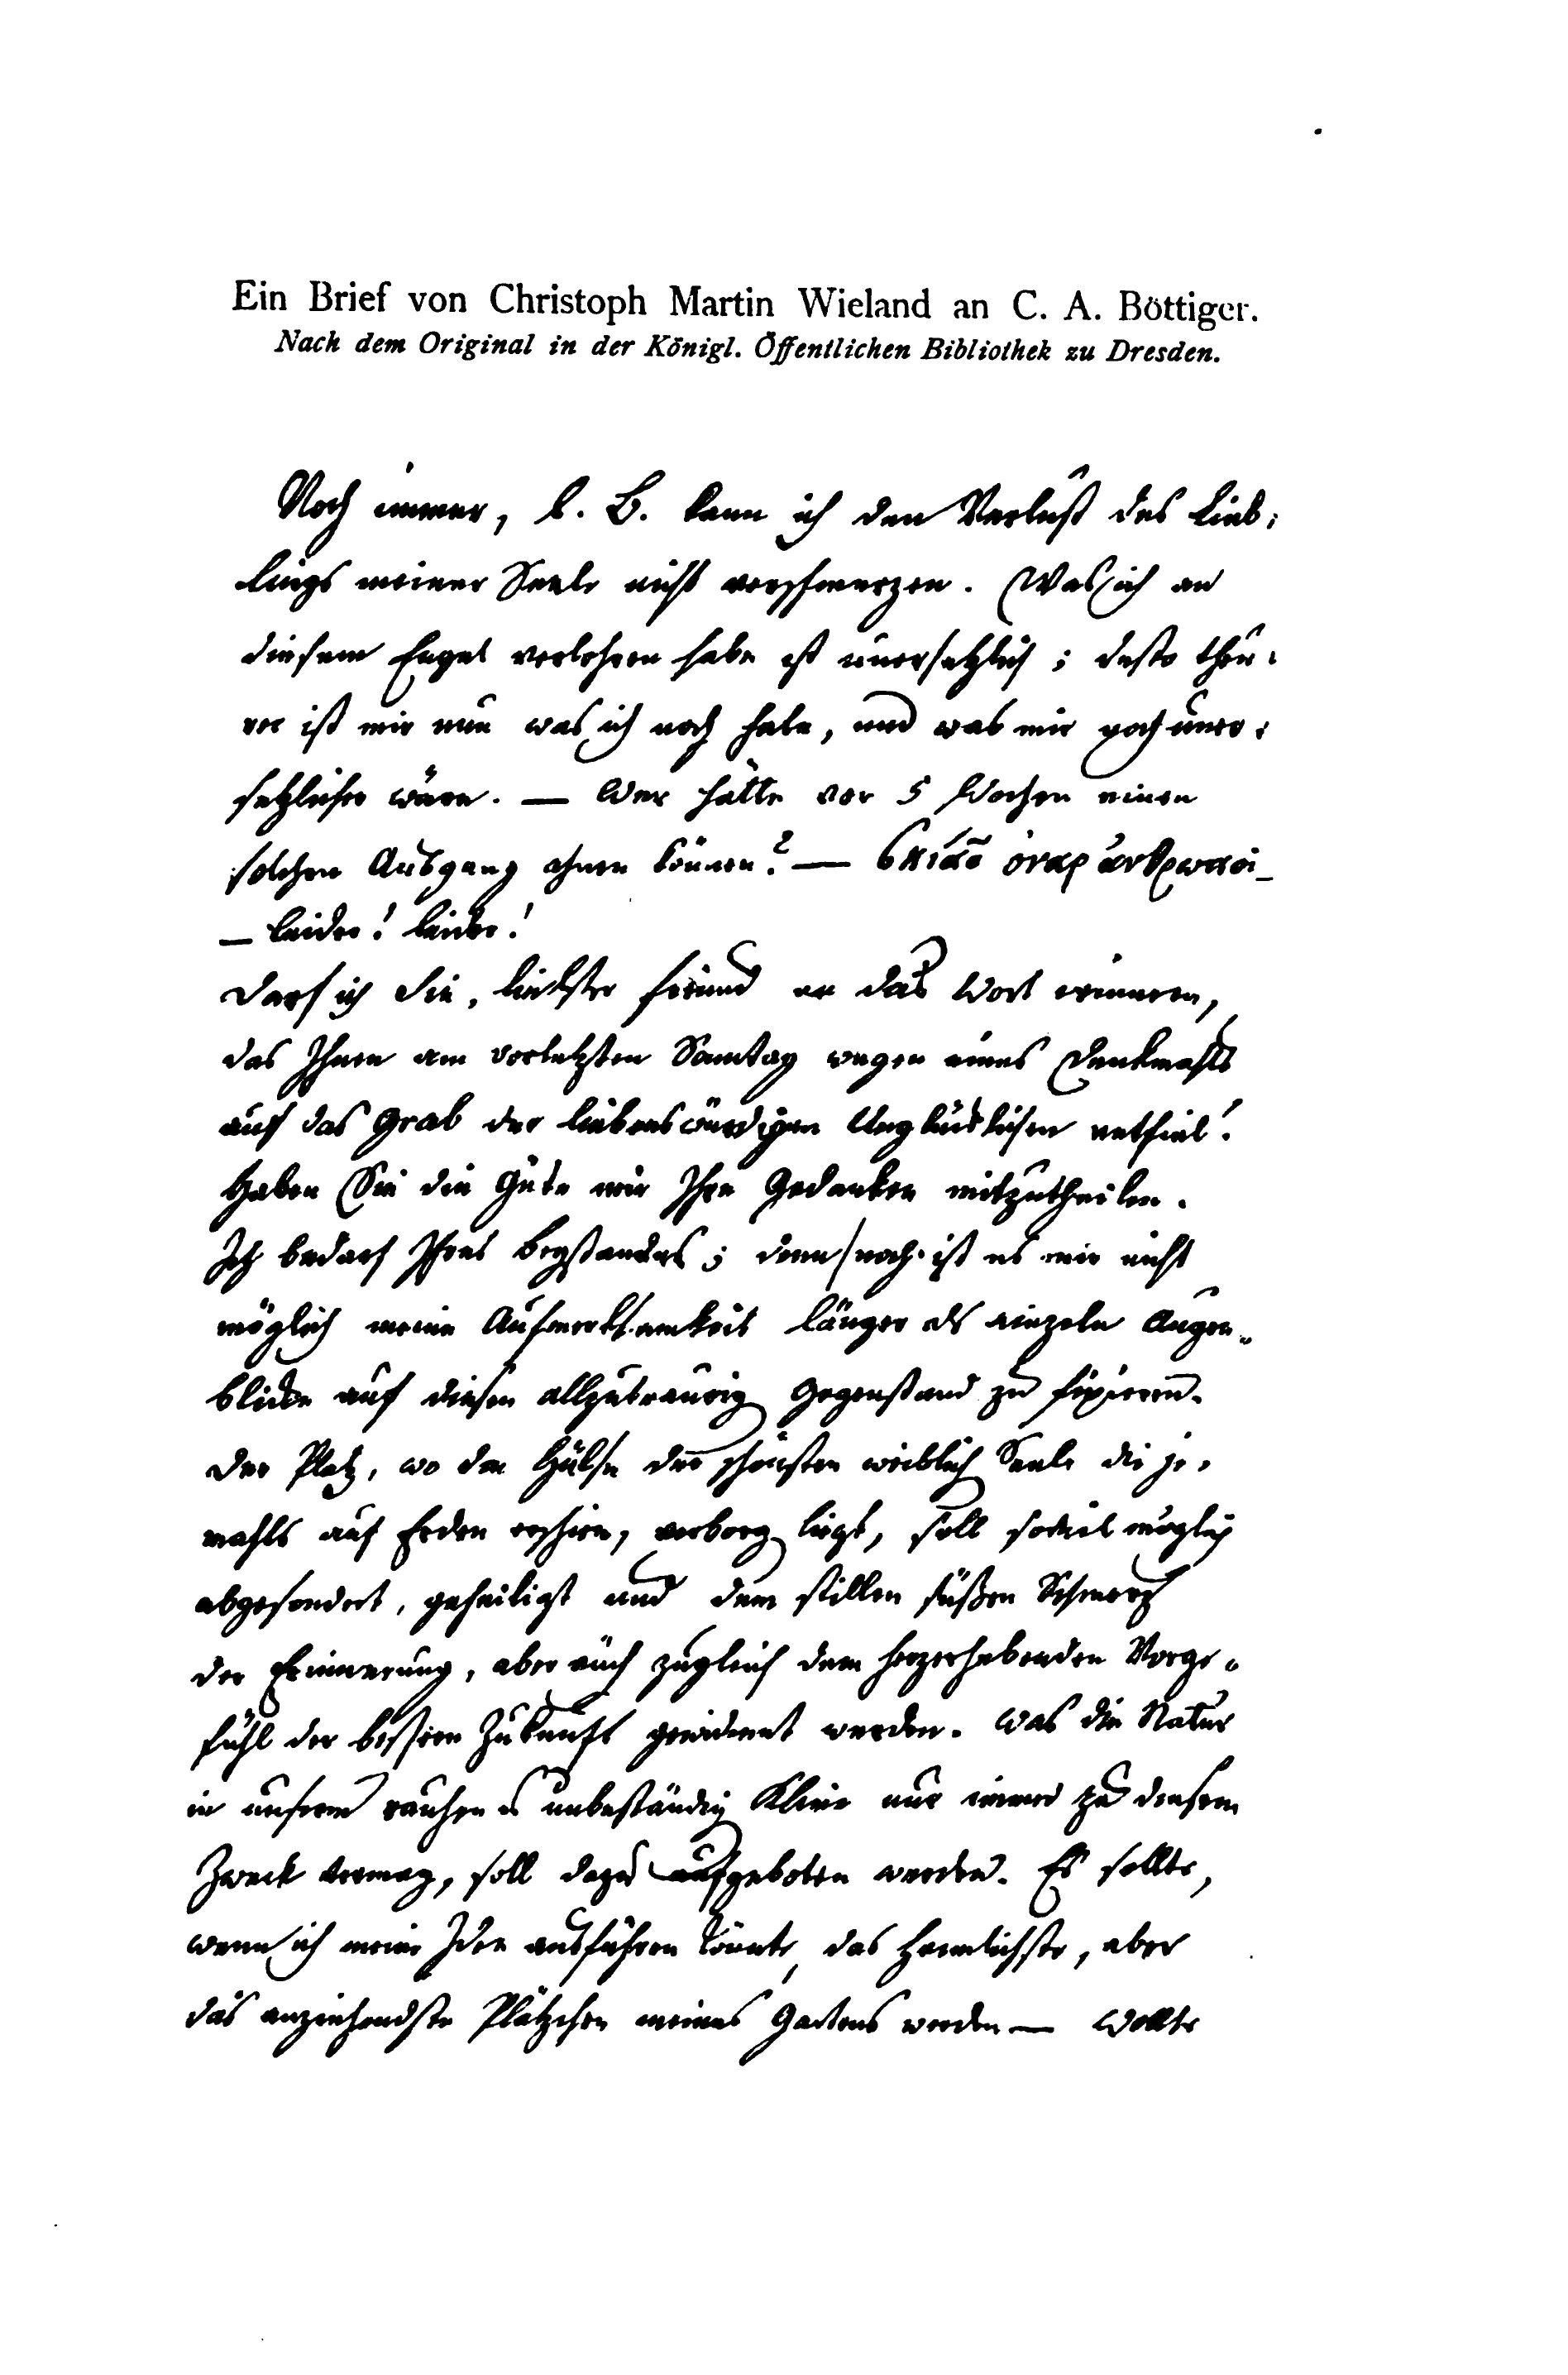 Ein Brief von Christoph Martin Wieland an C. A. Böttiger.
Nach dem Original in der Königl. Öffentlichen Bibliothek zu Dresden.
Noch immer, l. B. kann ich den Verlust des Lieb-
lings meiner Seele nicht verschmerzen. Was ich an
diesem Engel verlohren habe ist unersetzlich; desto theu-
rer ist mir nun was ich noch habe, und was mir noch uner-
setzlicher wäre. — Wer hätte vor 5 Wochen einen
solchen Ausgang ahnen können? — σκιᾶς ὄναρ ἄνθρωποι —
— leider! leider!
Darf ich Sie, liebster Freund an das Wort erinnern,
das Ihnen am vorletzten Sonntag wegen eines Denkmahls
auf das Grab der liebenswürdigen Unglücklichen entfiel?
Haben Sie die Güte mir Ihre Gedanken mitzutheilen.
Ich bedarf Ihres Beystandes; denn noch ist es mir nicht
möglich meine Aufmerksamkeit länger als einzeln Augen-
blicke auf diesen allzutraurig Gegenstand zu fixieren.
Der Platz, wo die Hülse der schönsten weiblich Seele die je-
mahls auf Erden erschien, verborg liegt, soll soviel möglich
abgesondert, geheiligt und dem stillen süßen Schmerz
der Erinnerung, aber auch zugleich dem herzerhebenden Vorge-
fühl der bessern Zukunft gewidmet werden. Was die Natur
in unserm rauhen u unbeständig Klima nur immer zu diesem
Zweck vermag, soll dazu aufgeboten werden. Es sollte,
wenn ich meine Idee ausführen könnte, das heimlichste, aber
das anziehendste Plätzchen meines Gartens werden — Wollte